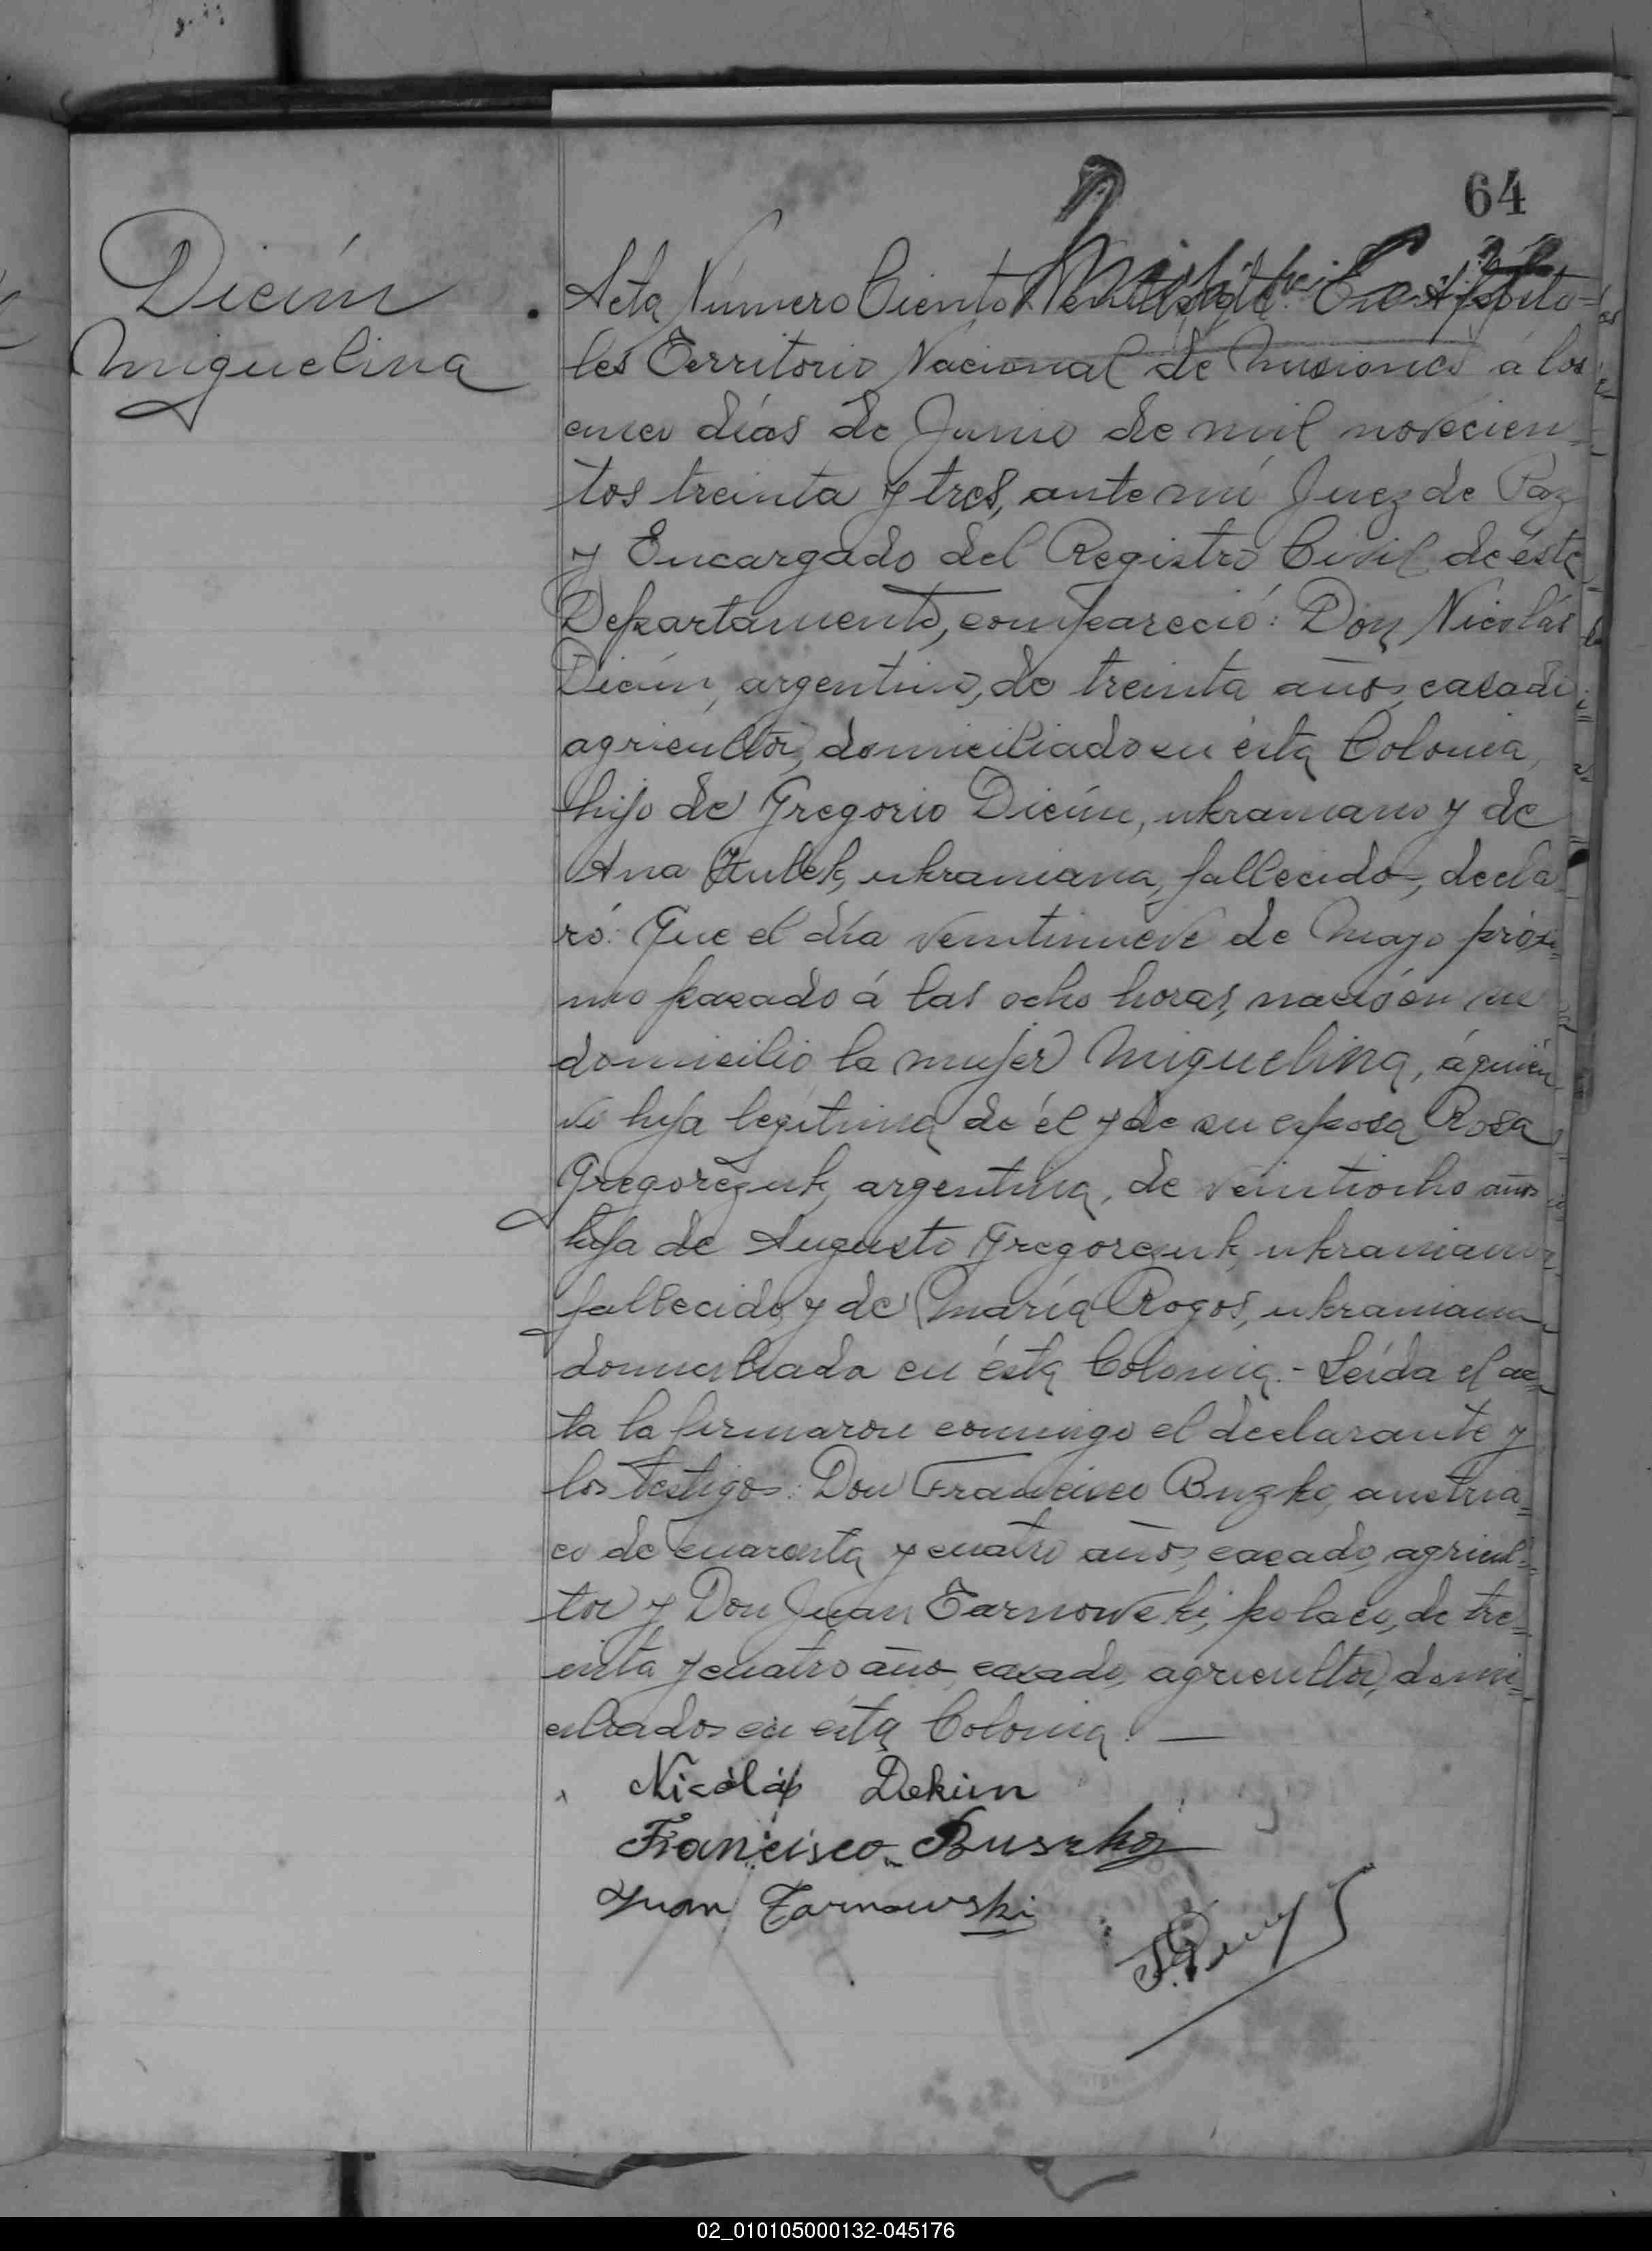 64
Dicún
Miguelina
Acta Número Ciento Veintisiete. En Apósto=
les Territorio Nacional de Misiones á los
cinco días de Junio de mil novecien=
tos treinta y tres, ante mí Juez de Paz
y Encargado del Registro Civil de éste
Departamento, compareció: Don Nicolás
Dicún, argentino, de treinta años, casado
agricultor, domiciliado en ésta Colonia,
hijo de Gregorio Dicún, ukraniano y de
Ana, ukraniana, fallecidos, decla
ró: Que el día veintinueve de Mayo próxi=
mo pasado á las ocho horas, nació en su
domicilio la mujer Miguelina, á quien
ví hija legítima de él y de su esposa Rosa
Gregorczuk, argentina, de veintiocho años
hija de Augusto Gregorczuk, ukraniano
fallecido y de María Rogos, ukraniana
domiciliada en ésta Colonia.- Leída el ac=
ta la firmaron conmigo el declarante y
los testigos: Don Francisco Buzko, austria=
co de cuarenta y cuatro años, casado, agricul=
tor y Don Juan Tarnowski, polaco, de tre=
inta y cuatro años, casado, agricultor, domi=
ciliados en ésta Colonia.—
Nicolás Dekun
Francisco Buszko
Juan Tarnawski
02_010105000132-045176